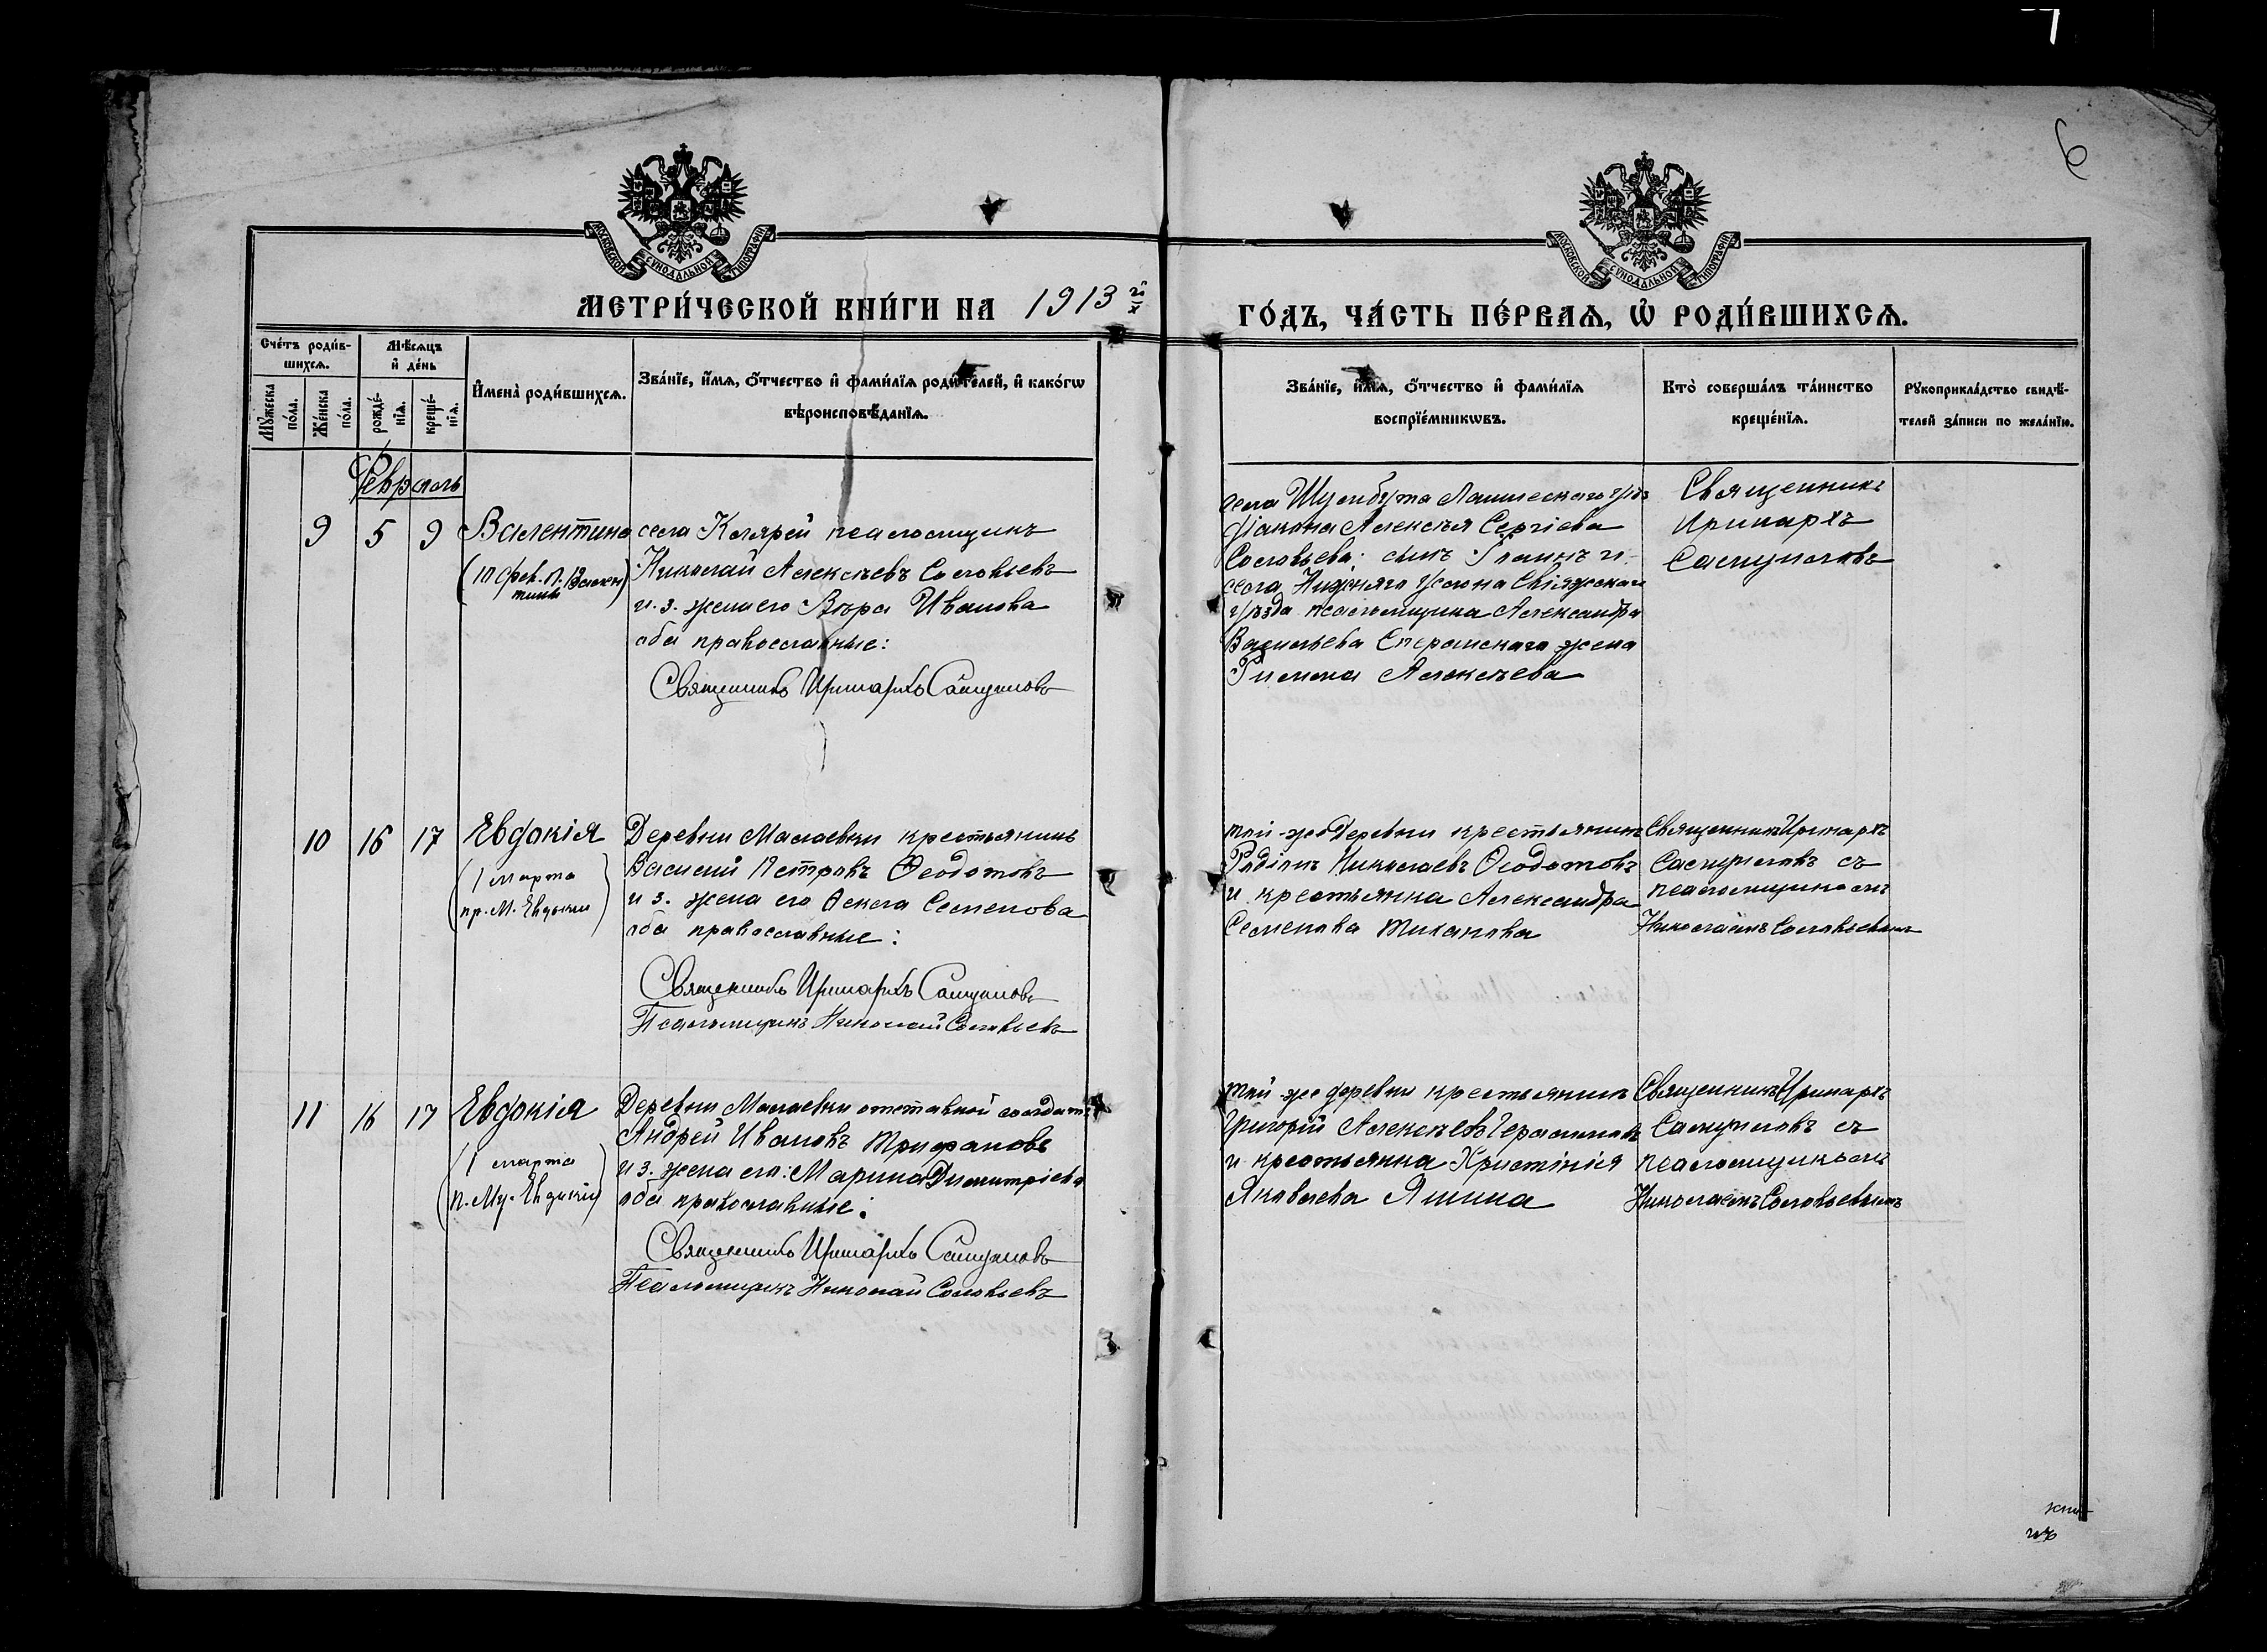 6
МОСКОВСКОЙ СУНОДАЛЬНОЙ ТИПОГРАФІИ
МОСКОВСКОЙ СУНОДАЛЬНОЙ ТИПОГРАФІИ
МЕТРИ́ЧЕСКОЙ КНИ́ГИ НА 1913 й
ГО́ДЪ, ЧА́СТЬ ПЕ́РВАѦ, Ѡ҆ РОДИ́ВШИХСѦ.
Сче́тъ роди́в-
шихсѧ.
Мꙋ́жеска по́ла.
Же́нска по́ла.
Мѣ́сѧцъ
и҆ де́нь
рожде́-
нїѧ.
креще́-
нїѧ.
И҆мена̀ роди́вшихсѧ.
Зва́нїе, и҆́мѧ, ѻ҆́тчество и҆ фами́лїѧ роди́телей, и҆ како́гѡ
вѣроисповѣ́данїѧ.
Зва́нїе, и҆́мѧ, ѻ҆́тчество и҆ фами́лїѧ
воспрїе́мникѡвъ.
Кто̀ соверша́лъ та́инство
креще́нїѧ.
Рꙋкоприкла́дство свидѣ́-
телей за́писи по жела́нїю.
Февраль
9 5 9 Валентина
села Клярей псаломщикъ
Николай Алексѣевъ Соловьевъ
и з. жена его Вѣра Иванова
оба православные:
Священникъ Иринархъ
села Шумбута Лаишевскаго
діакона Алексѣя Сергіева
Соловьева: сынъ и
села Нижняго Услона Свіяжскаго
уѣзда псаломщика Александра
Васильева Сперанскаго жена
Римма Алексѣева
Священникъ
Иринархъ
10 16 17 Евдокія
(1 марта
пр. М. Евдокіи)
Деревни Малаевки крестьянинъ
Василій Петровъ Ѳеодотовъ
и з. жена его Семенова
оба православные:
Священникъ Иринархъ
Псаломщикъ Николай Соловьевъ
той-же деревни крестьянинъ
Родіонъ Николаевъ Ѳеодотовъ
и крестьянка Александра
Семенова Тиханова
Священникъ Иринархъ
съ
псаломщикомъ
Николаемъ Соловьевымъ
11 16 17 Евдокія
(1 марта
п. Му. Евдокіи)
Деревни Малаевки отставной солдатъ
Андрей Ивановъ Трифановъ
и з. жена его: Марина Димитріева
оба православные:
Священникъ Иринархъ
Псаломщикъ Николай Соловьевъ
той-же деревни крестьянинъ
Григорій Алексѣевъ Герасимовъ
и крестьянка Христінія
Яковлева Яшина
Священникъ Иринархъ
съ
псаломщикомъ
Николаемъ Соловьевымъ